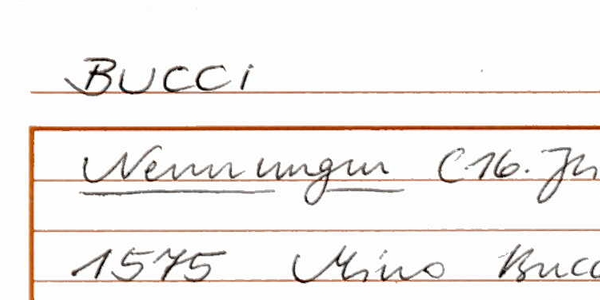 BUCCI
Nennungen (16. Jh
1575 Mino Bucc